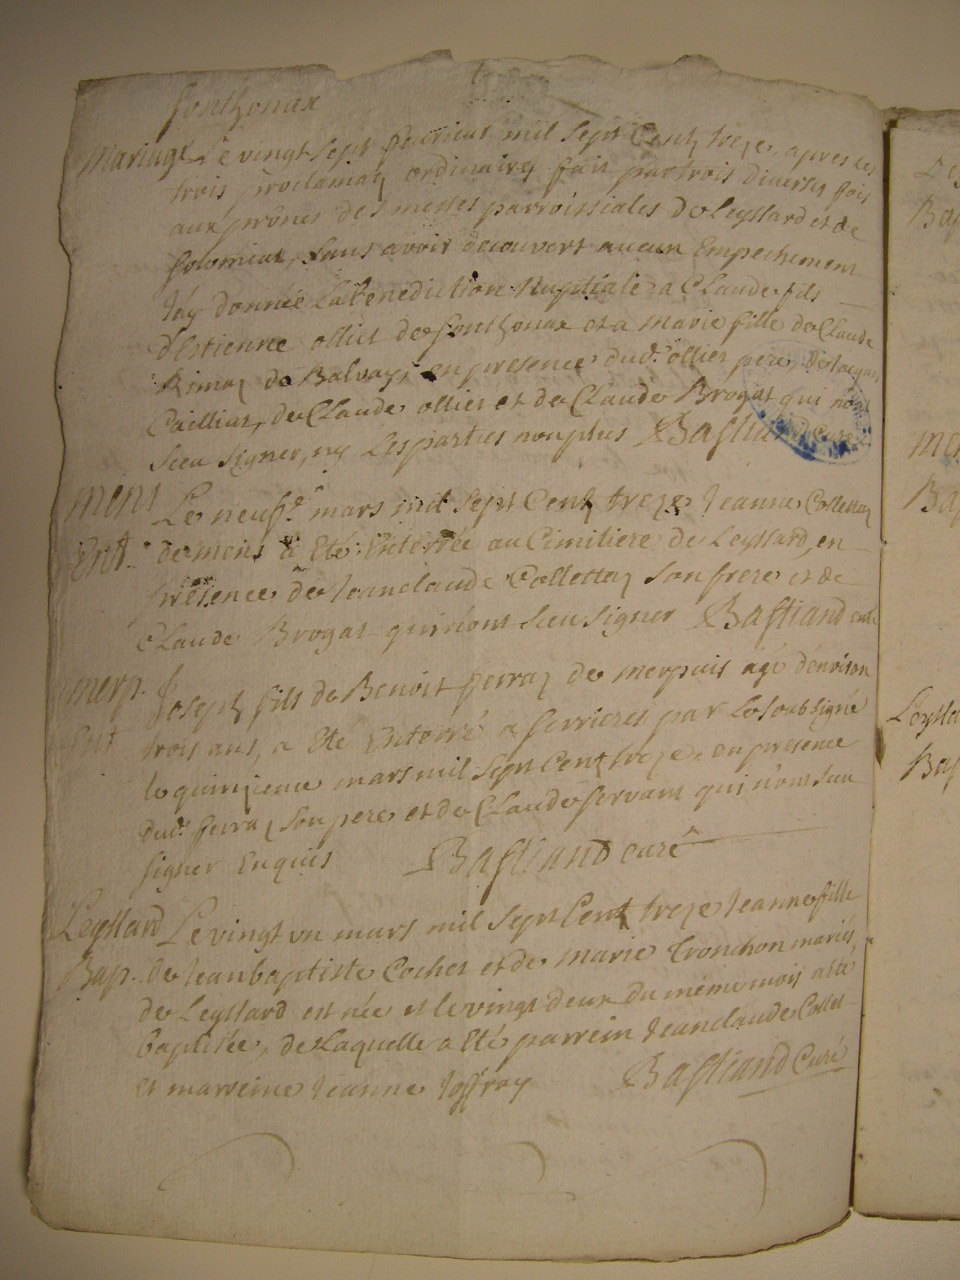 fonthonax
Mariage Le vingt sept feuvrier mil sept Cent treze, apres les
trois proclamaõ ordinaires fait par trois diverses fois
aux prônes des messes parroissiales de Leyssard et de
solomiat, sans avoir decouvert aucun Empechement
J'ay donnée la benediction Nuptiale a Claude fils
d'Estienne ollier de fonthonax et a Marie fille de Claude
de Balvay, en presence dud. ollier pere, de Jacques
Cailliat, de Claude ollier et de Claude Brogat qui n'ont
sceu signer, ny Les parties non plus Bastiand Curé
ment Le neufe mars mil sept Cent treze Jeanne Collettaz
Ent. de mens a Eté Enterrée au Cimitiere de Leyssard, en
presence de Jeanclaude Collettaz son frere et de
Claude Brogat qui n'ont sceu signer Bastiand curé
merp. Joseph fils de Benoit ferraz de merpuis agé d'environ
Ent trois ans, a Eté Enterré a serrieres par Le soubsigné
le quinzieme mars mil sept Cent treze, en presence
dud. ferraz son pere et de Claude servant qui n'ont sceu
signer Enquis Bastiand curé
Leyssard Le vingt un mars mil sept Cent treze Jeanne fille
Bap. de Jeanbaptiste Cochet et de Marie Tronchon mariés
de Leyssard est née et le vingt deux du même mois a été
baptisée, de Laquelle a Eté parrein Jeanclaude Collet
et marreine Jeanne Joffray Bastiand Curé